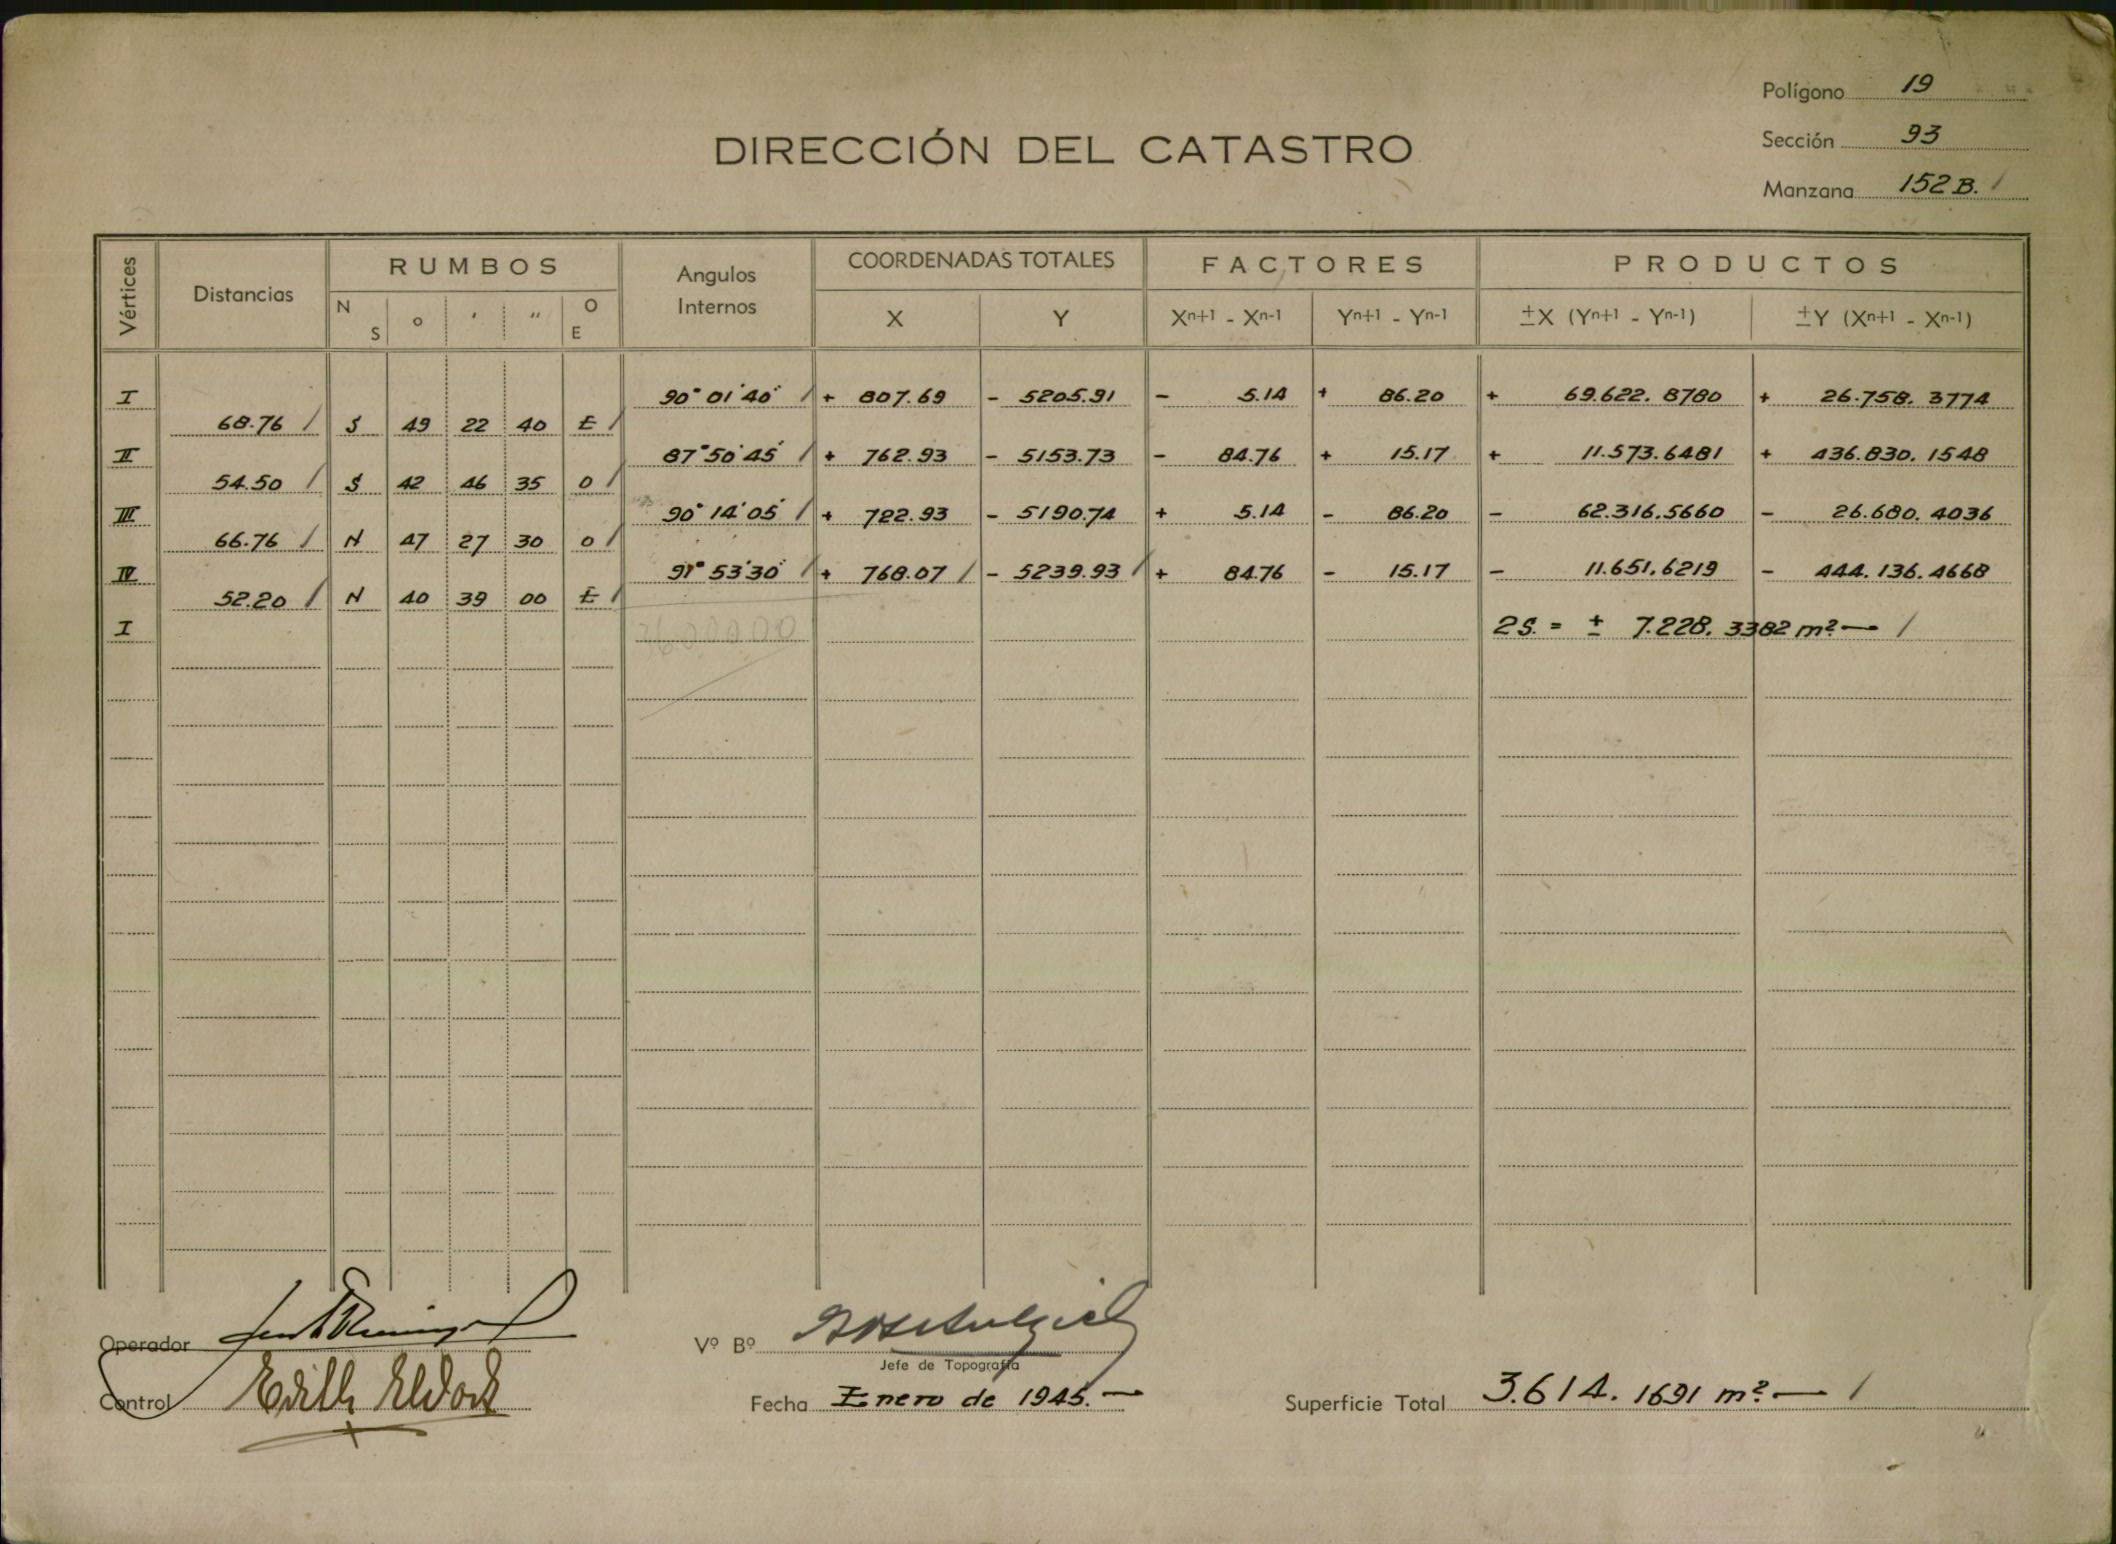 Polígono 19
Sección 93
Manzana 152 B.
DIRECCIÓN DEL CATASTRO
Vértices Distancias RUMBOS Angulos Internos COORDENADAS TOTALES FACTORES PRODUCTOS
N S ° ' " O E X Y Xn+1 - Xn-1 Yn+1 - Yn-1 ±X (Yn+1 - Yn-1) ±Y (Xn+1 - Xn-1)
I 90° 01' 40" + 807.69 - 5205.91 - 5.14 + 86.20 + 69.622.8780 + 26.758.3774
68.76 S 49 22 40 E
II 87° 50' 45" + 762.93 - 5153.73 - 84.76 + 15.17 + 11.573.6481 + 436.830.1548
54.50 S 42 46 35 O
III 90° 14' 05" + 722.93 - 5190.74 + 5.14 - 86.20 - 62.316.5660 - 26.680.4036
66.76 N 47 27 30 O
IV 91° 53' 30" + 768.07 - 5239.93 + 84.76 - 15.17 - 11.651.6219 - 444.136.4668
52.20 N 40 39 00 E
I 360000 2S. = ± 7.228.3382 m²
Operador
Vº Bº
Jefe de Topografía
Control Edith
Fecha Enero de 1945.
Superficie Total 3.614.1691 m²